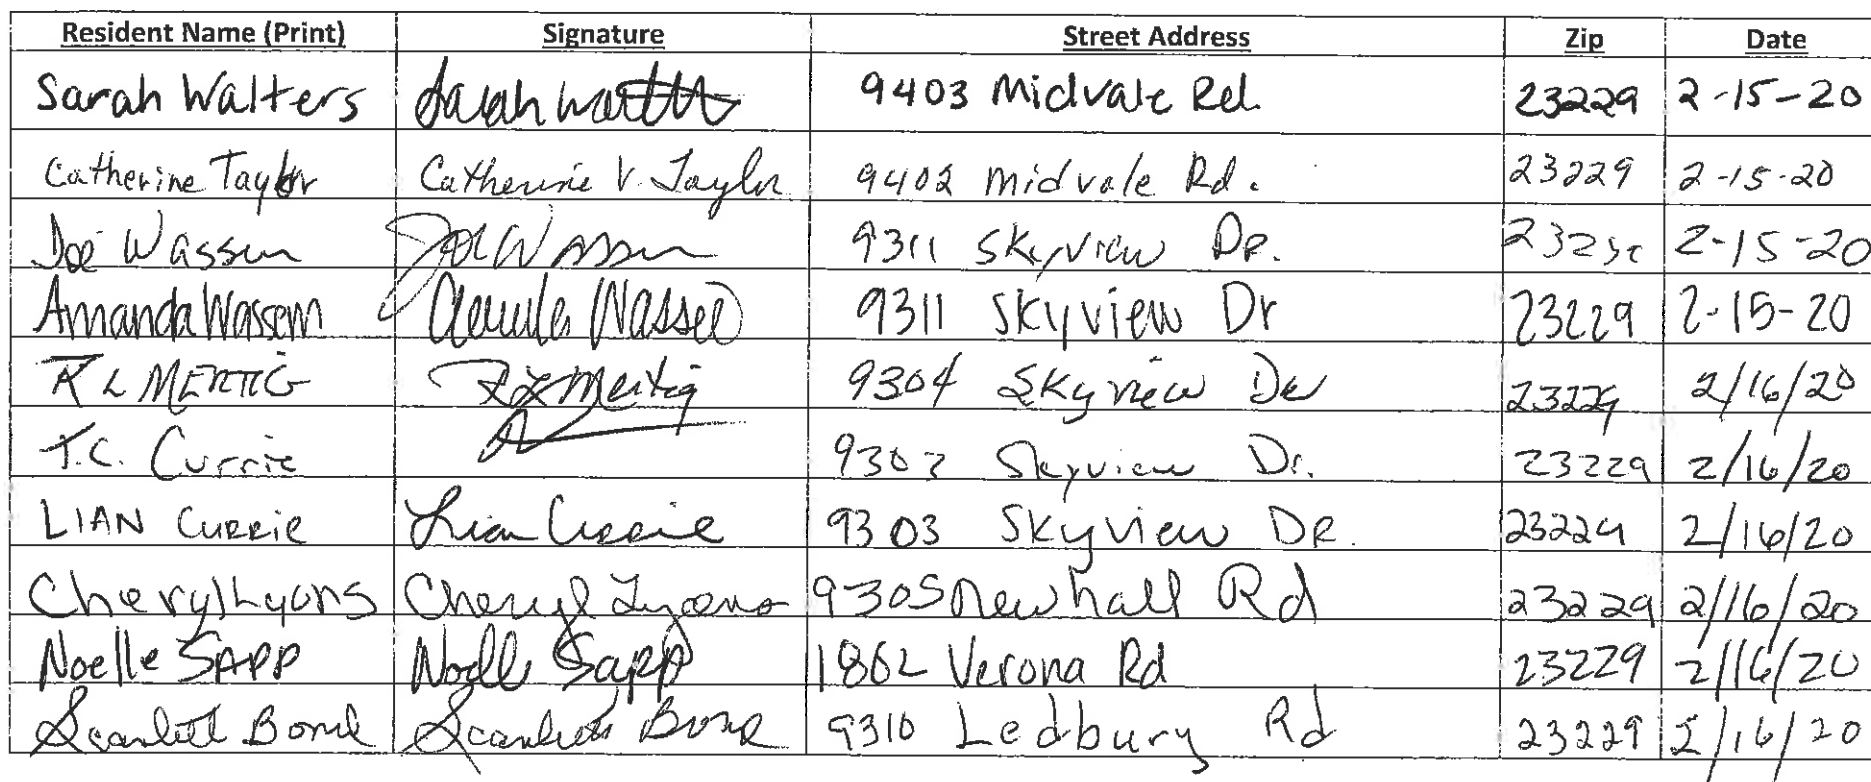 Resident Name (Print) Signature Street Address Zip Date
Sarah Walters Sarah Walters 9403 Midvale Rd. 23229 2-15-20
Catherine Taylor Catherine V. Taylor 9402 Midvale Rd. 23229 2-15-20
Joe Wassum Joe Wassum 9311 Skyview Dr. 2-15-20
Amanda Wassem 9311 Skyview Dr 23229 2-15-20
R L MERTIG R L Mertig 9304 Skyview Dr 23229 2/16/20
T.C. Currie 9303 Skyview Dr. 23229 2/16/20
LIAN CURRIE Lian Currie 9303 Skyview DR. 23229 2/16/20
Cheryl Lyons Cheryl Lyons 9305 Newhall Rd 23229 2/16/20
Noelle SAPP Noelle Sapp 1802 Verona Rd 23229 2/16/20
Scarlett Bond Scarlett Bond 9310 Ledbury Rd 23229 2/16/20